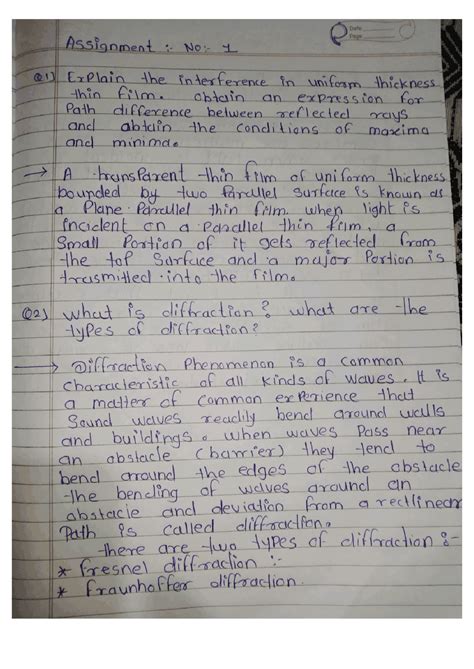 Date
Page
Assignment :- No:- 1
Q1) Explain the interference in uniform thickness
thin film. obtain an expression for
Path difference between reflected rays
and obtain the conditions of maxima
and minima.
→ A transparent thin film of uniform thickness
bounded by two Parallel surface is known as
a Plane Parallel thin film. when light is
incident on a Parallel thin film, a
Small Portion of it gets reflected from
the top Surface and a major Portion is
trasmitted into the film.
Q2) what is diffraction? what are the
types of diffraction?
→ Diffraction Phenomenon is a common
characteristic of all kinds of waves. It is
a matter of common experience that
Sound waves readily bend around walls
and buildings. when waves Pass near
an obstacle (barrier) they tend to
bend around the edges of the obstacle
the bending of waves around an
obstacle and deviation from a rectlinear
Path is called diffraction.
there are two types of diffraction :-
* fresnel diffraction :-
* fraunhoffer diffraction.